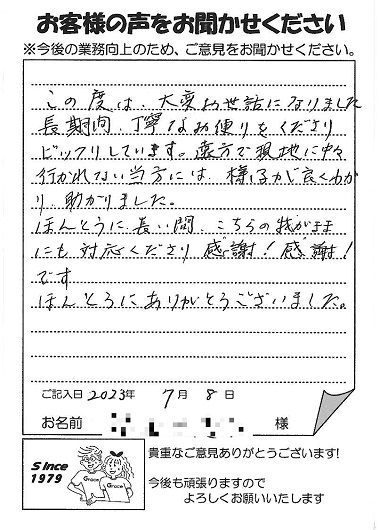 お客様の声をお聞かせください
※今後の業務向上のため、ご意見をお聞かせください。
この度は、大変お世話になりました
長期間、丁寧なお便りをくださり
ビックリしています。遠方で現地に中々
行かれない当方には、様子が良くわか
り、助かりました。
ほんとうに長い間、こちらの我がまま
にも対応くださり感謝！感謝！
です
ほんとうにありがとうございました。
ご記入日 2023年 7月 8日
お名前 様
Since
1979
Grace
Grace
貴重なご意見ありがとうございます!
今後も頑張りますので
よろしくお願いいたします